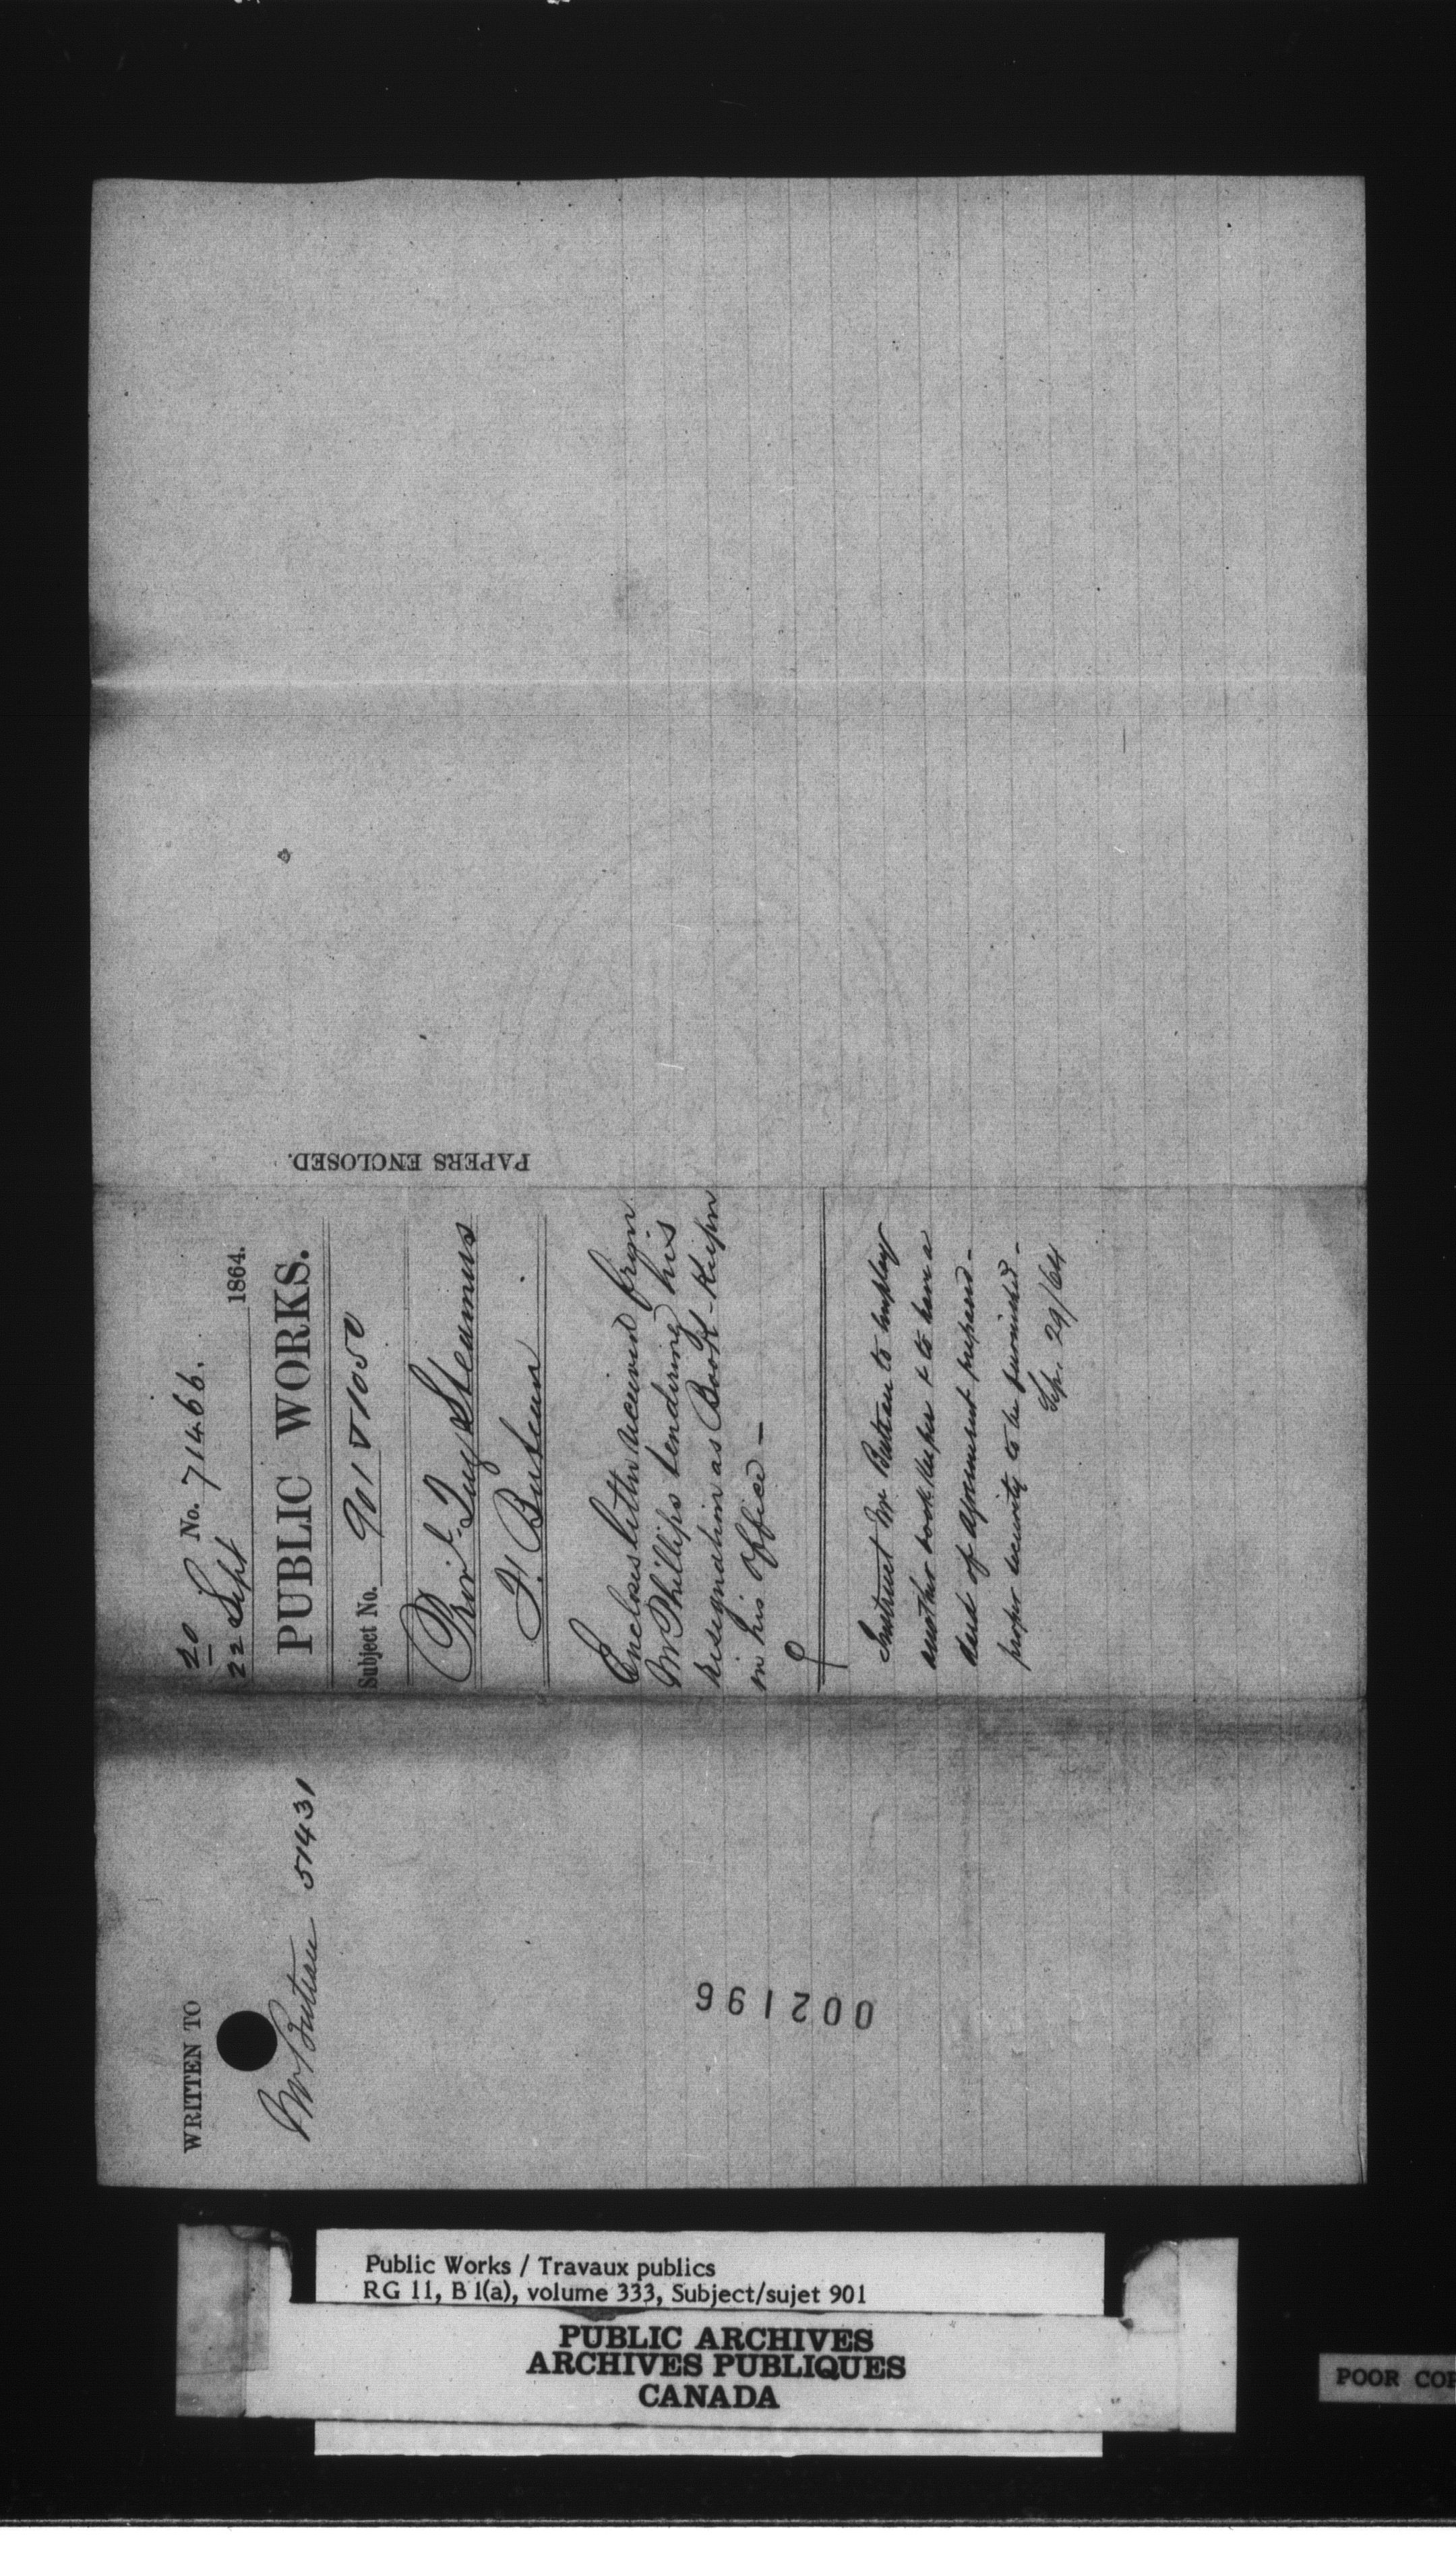 20 No. 71466.
22 Sept 1864.
PUBLIC WORKS.
Subject No. 901 & 1050
Provl. Tug Steamers
F. Buteau
Encloses letter received from
Mr Phillips tendering his
resignation as Book-Keeper
in his Office —
Instruct Mr. Buteau to employ
another book keeper & to have a
deed of agreement prepared —
proper security to be furnished —
Sep. 29/64
PAPERS ENCLOSED.
WRITTEN TO
Mr Buteau 51431
002196
Public Works / Travaux publics
RG 11, B 1(a), volume 333, Subject/sujet 901
PUBLIC ARCHIVES
ARCHIVES PUBLIQUES
CANADA
POOR COP